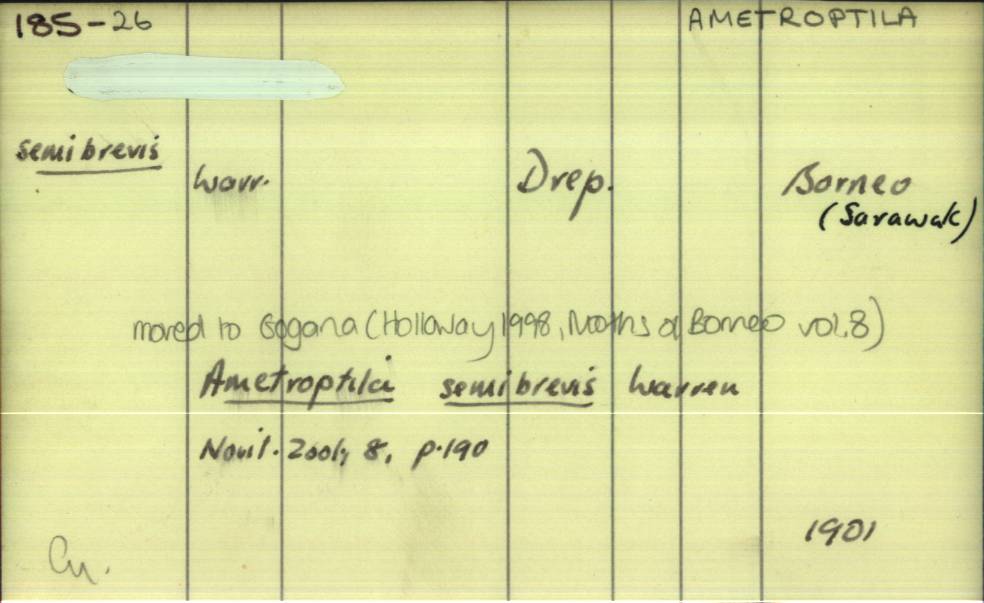 185-26 AMETROPTILA
semibrevis
Warr. Drep. Borneo
(Sarawak)
moved to Gogana (Holloway 1998, Moths of Borneo vol. 8)
Ametroptila semibrevis Warren
Novit. Zool. 8, p.190
1901